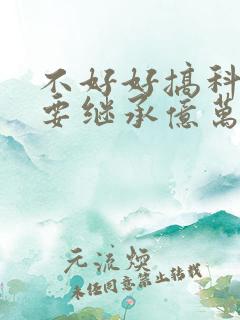 不好好搞科
要继承億萬
元流煥
未经同意禁止转载